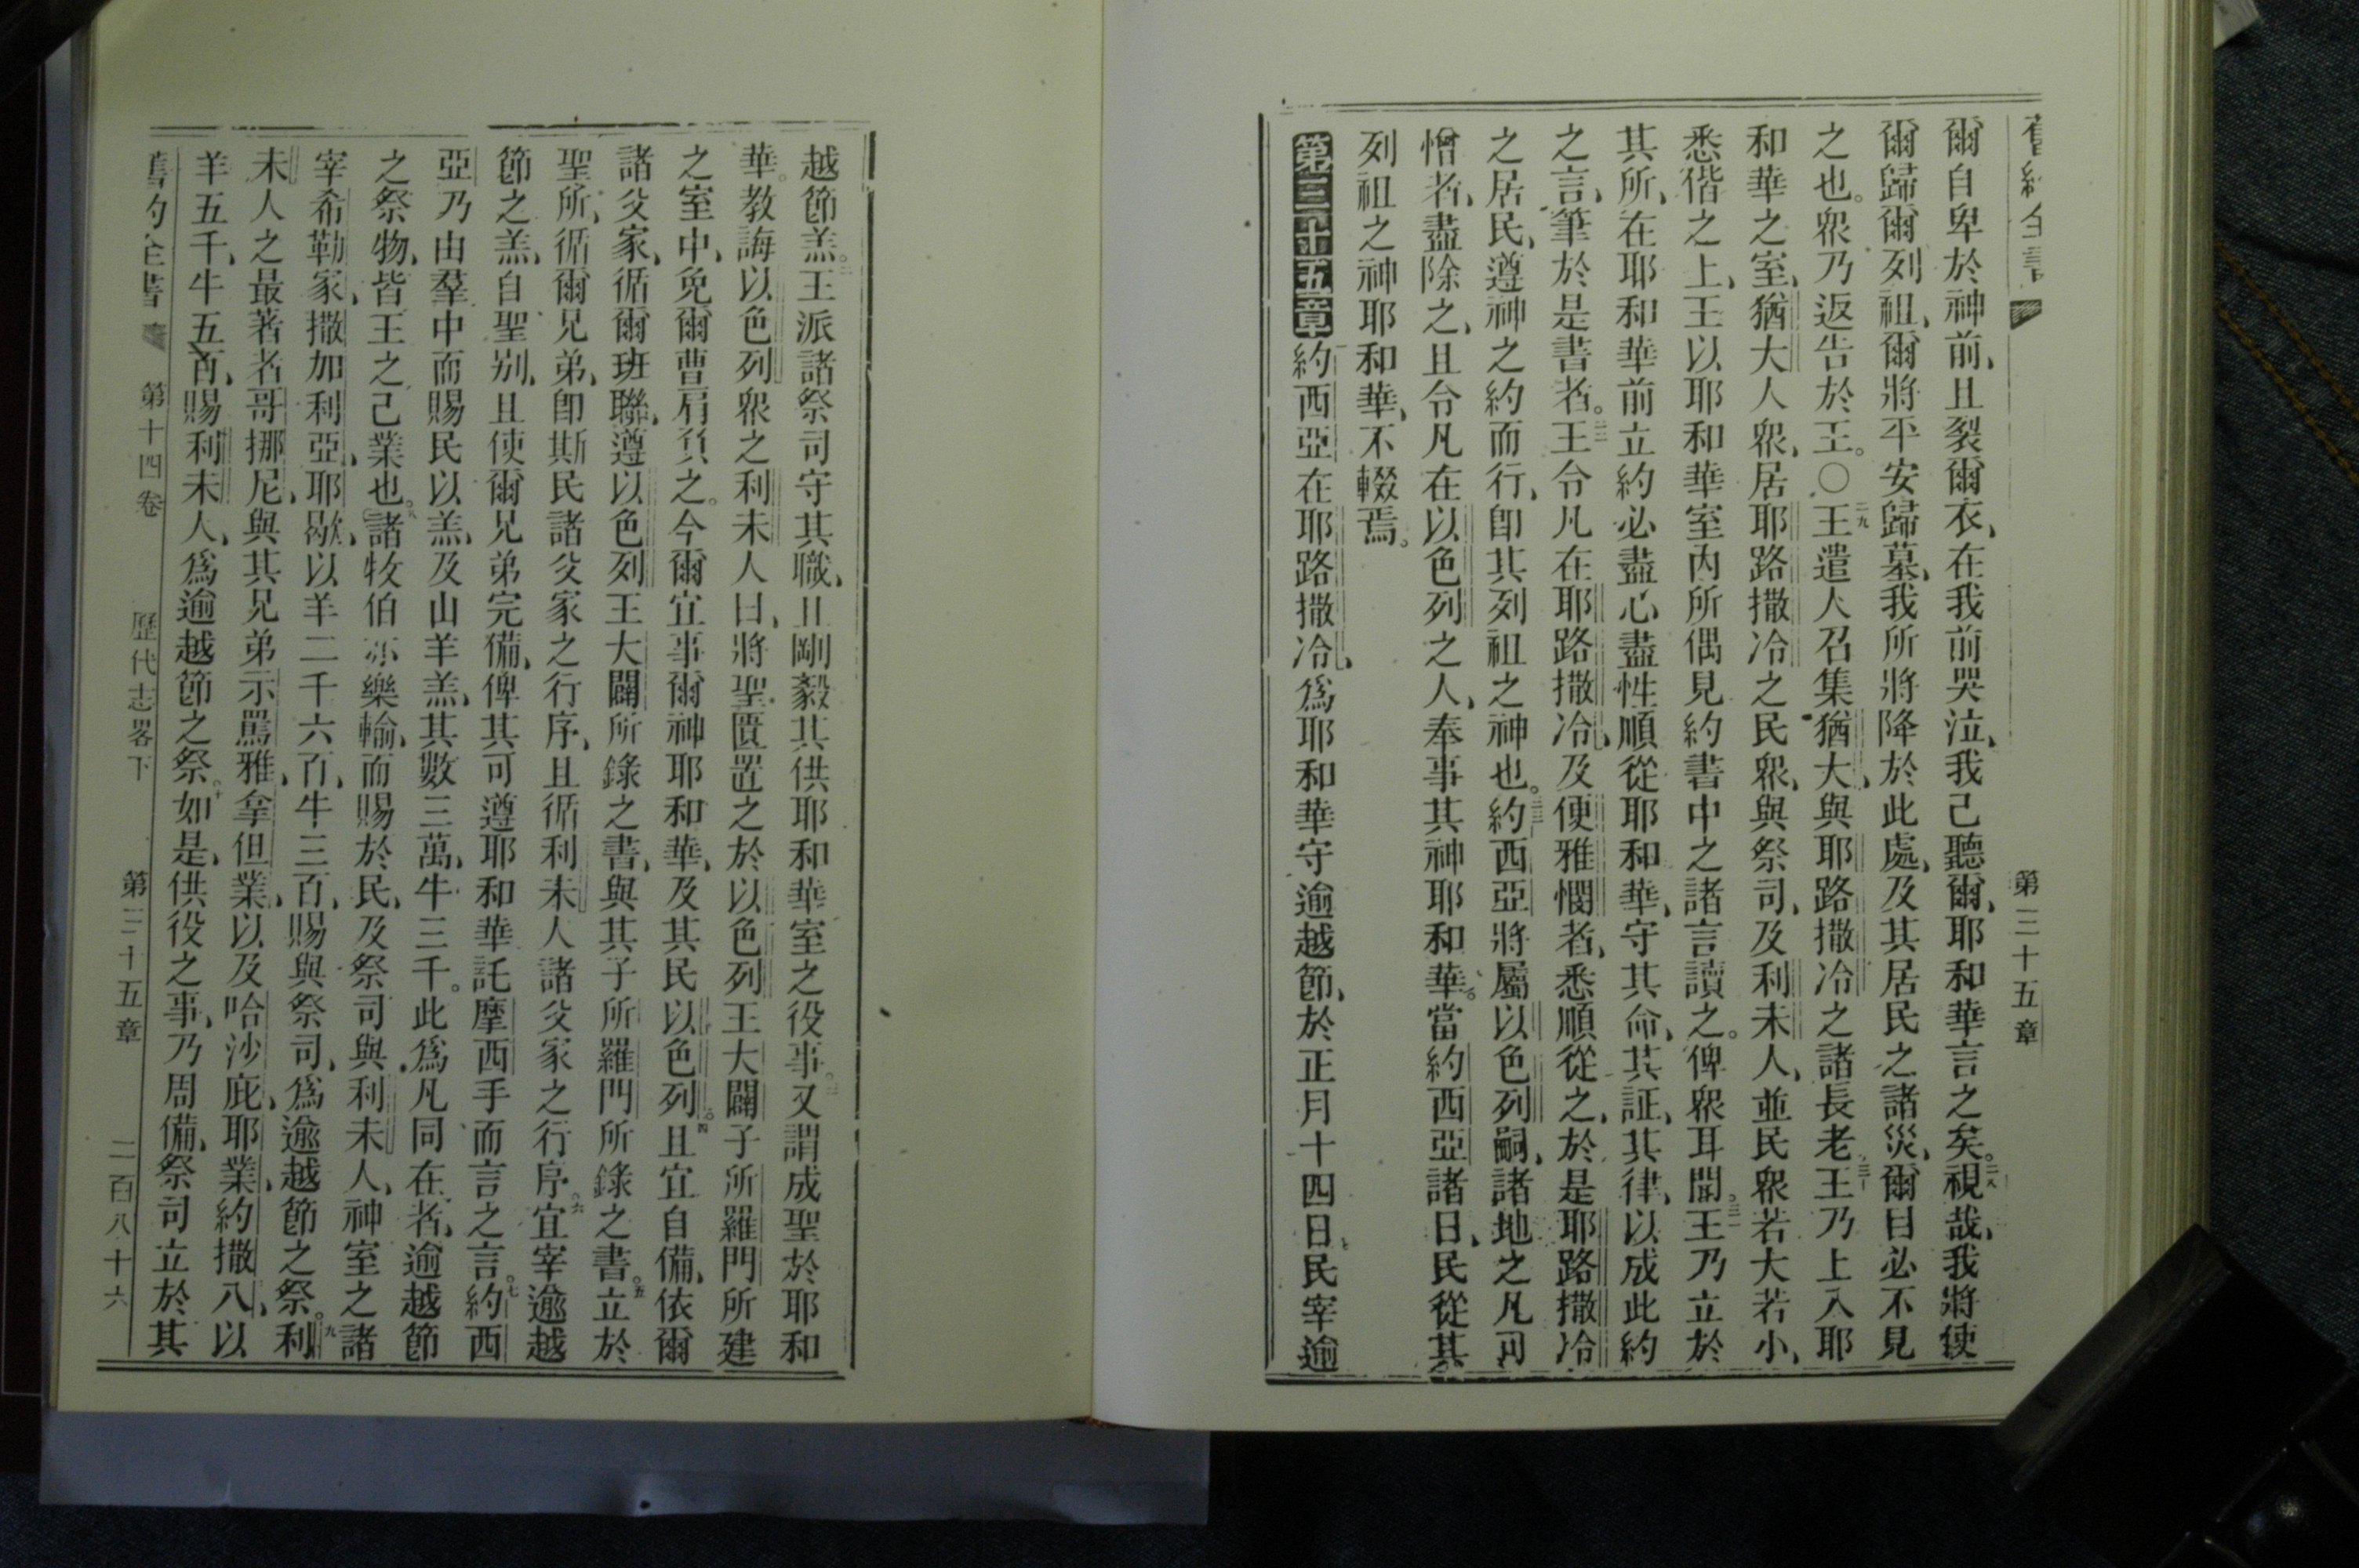 舊約全書 第三十五章
爾自卑於神前、且裂爾衣、在我前哭泣、我己聽爾、耶和華言之矣。二八視哉、我將使
爾歸爾列祖、爾將平安歸墓、我所將降於此處、及其居民之諸災、爾目必不見
之也。衆乃返告於王。○二九王遣人召集猶大、與耶路撒冷之諸長老三十王乃上入耶
和華之室、猶大人衆、居耶路撒冷之民衆、與祭司、及利未人、並民衆若大若小、
悉偕之上、王以耶和華室內所偶見約書中之諸言讀之。俾衆耳聞。三一王乃立於
其所、在耶和華前立約必盡心盡性順從耶和華、守其命、其証、其律、以成此約
之言、筆於是書者。三二王令凡在耶路撒冷、及便雅憫者、悉順從之、於是耶路撒冷
之居民、遵神之約而行、卽其列祖之神也。三三約西亞將屬以色列嗣、諸地之凡可
憎者、盡除之、且令凡在以色列之人、奉事其神耶和華。當約西亞諸日、民從其
列祖之神耶和華、不輟焉。
第三十五章約西亞在耶路撒冷、爲耶和華守逾越節、於正月十四日民宰逾
越節羔。二王派諸祭司守其職、且剛毅其供耶和華室之役事。三又謂成聖於耶和
華。教誨以色列衆之利未人曰、將聖匱置之於以色列王大闢子所羅門所建
之室中、免爾曹肩負之。今爾宜事爾神耶和華、及其民以色列。四且宜自備、依爾
諸父家、循爾班聯、遵以色列王大闢所錄之書、與其子所羅門所錄之書。五立於
聖所、循爾兄弟、卽斯民諸父家之行序、且循利未人諸父家之行序。六宜宰逾越
節之羔、自聖别、且使爾兄弟完備、俾其可遵耶和華託摩西手而言之言。七約西
亞乃由羣中而賜民以羔、及山羊羔、其數三萬、牛三千。此爲凡同在者、逾越節
之祭物、皆王之己業也。八諸牧伯亦樂輸、而賜於民、及祭司與利未人、神室之諸
宰希勒家、撒加利亞、耶歇、以羊二千六百、牛三百、賜與祭司、爲逾越節之祭。九利
未人之最著者哥挪尼、與其兄弟示罵雅、拿但業、以及哈沙庇、耶業、約撒八、以
羊五千、牛五百、賜利未人、爲逾越節之祭。十如是、供役之事、乃周備、祭司立於其
舊約全書 第十四卷 歷代志畧下 第三十五章 二百八十六